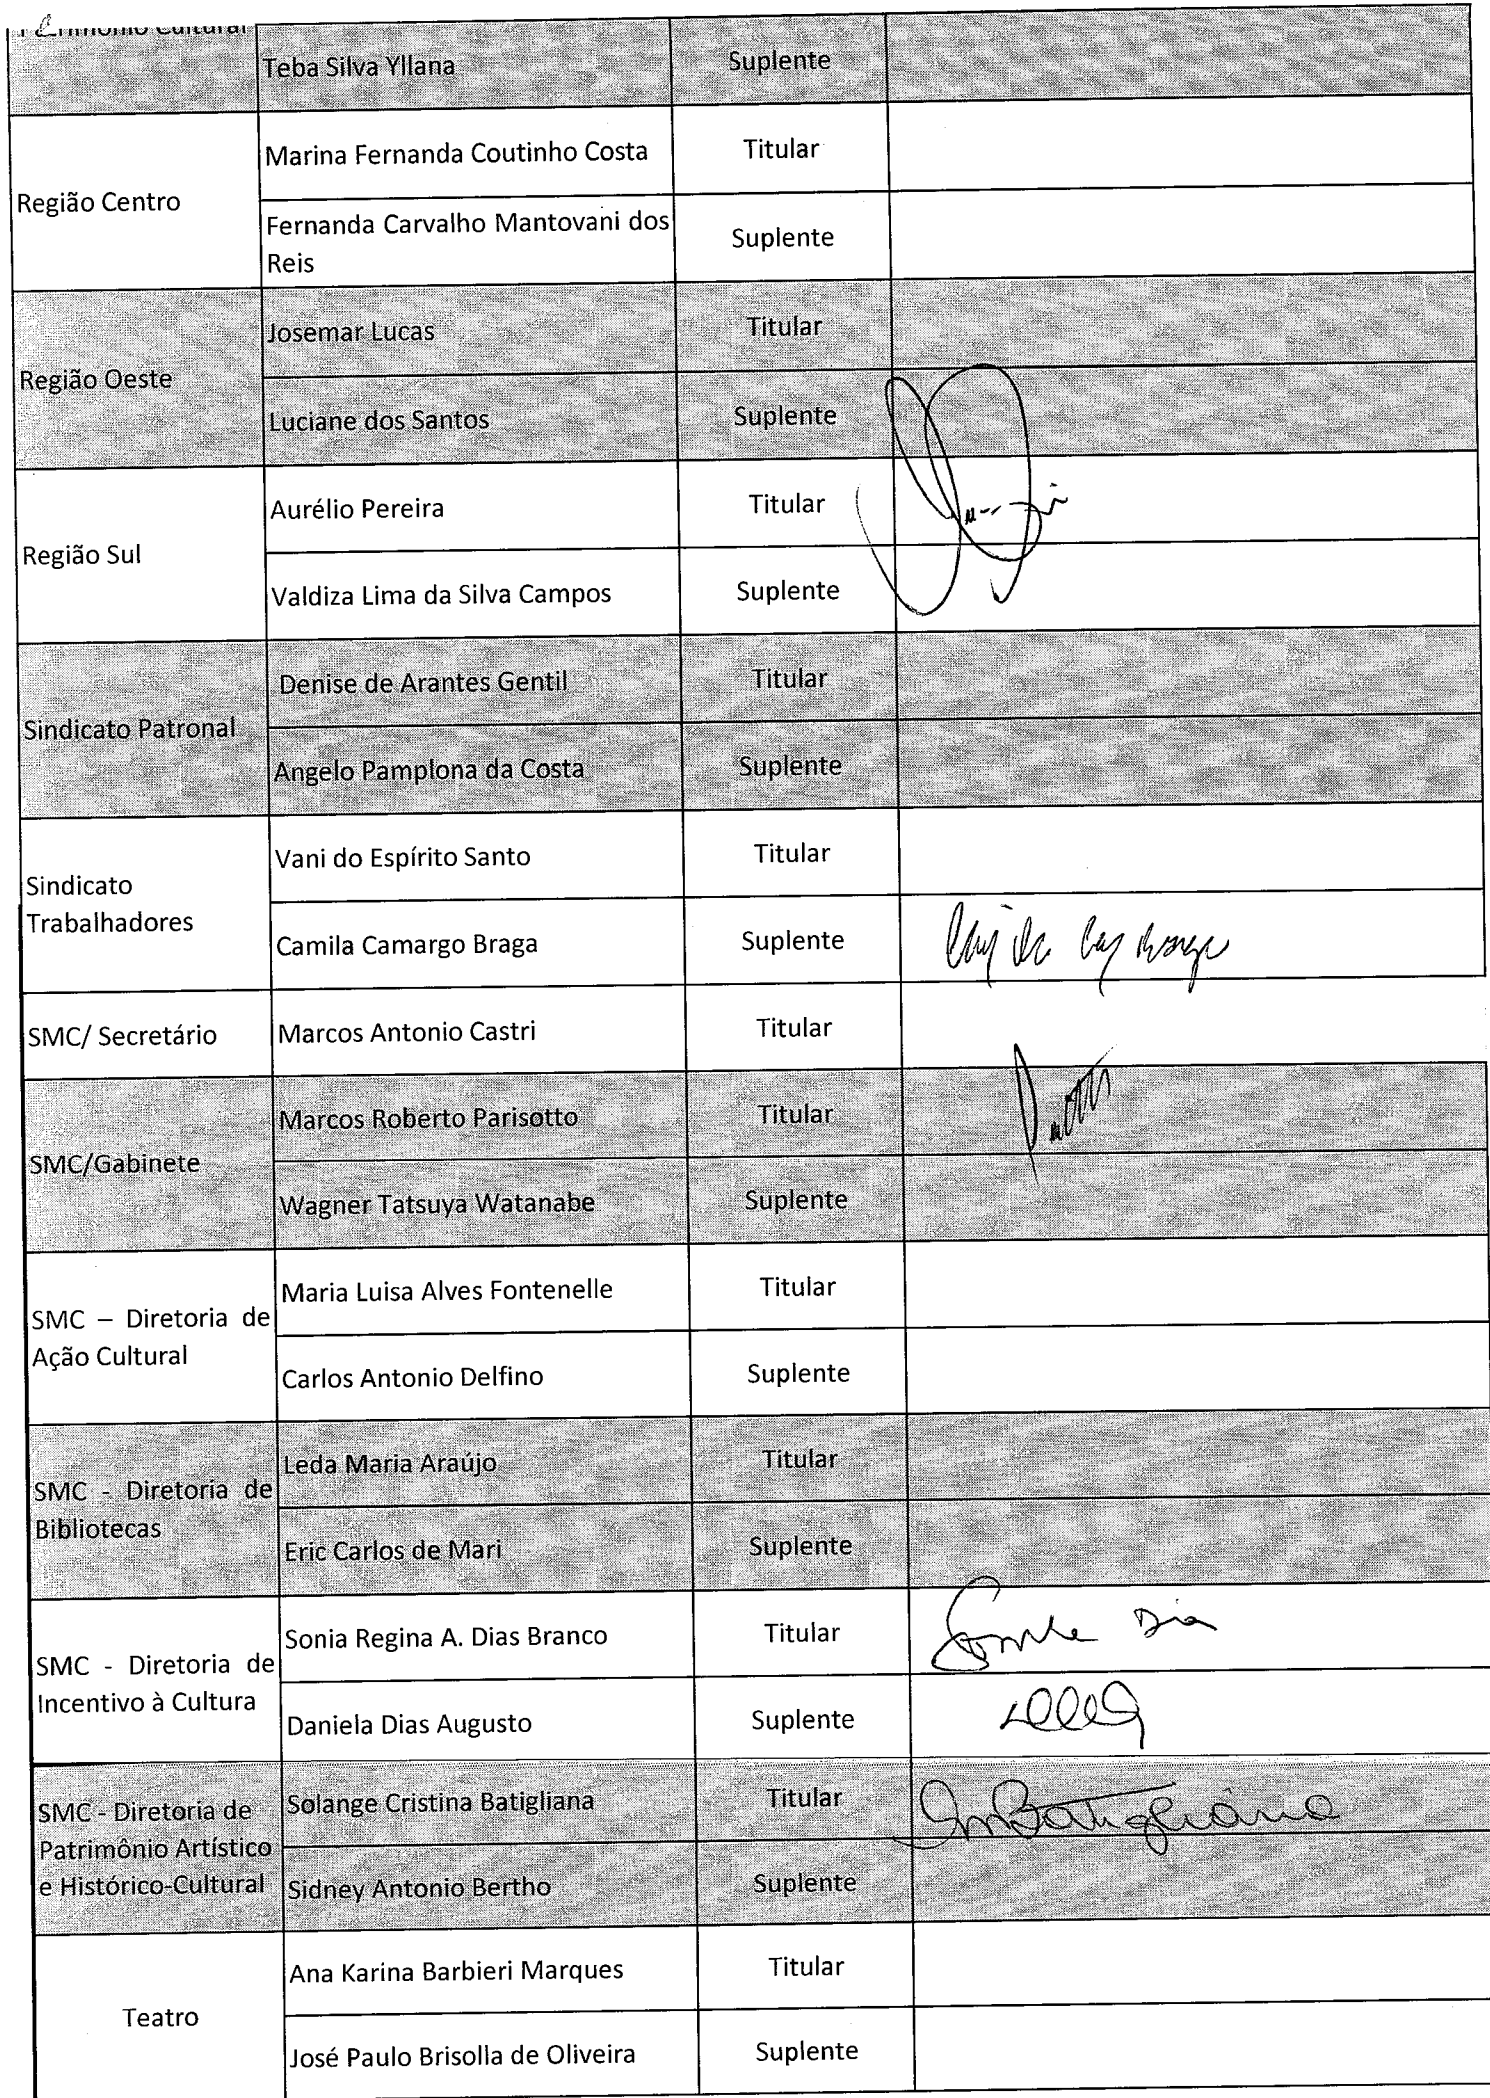 Cultural
Teba Silva Yllana Suplente
Região Centro
Marina Fernanda Coutinho Costa Titular
Fernanda Carvalho Mantovani dos
Reis Suplente
Região Oeste
Josemar Lucas Titular
Luciane dos Santos Suplente
Região Sul
Aurélio Pereira Titular
Valdiza Lima da Silva Campos Suplente
Sindicato Patronal
Denise de Arantes Gentil Titular
Angelo Pamplona da Costa Suplente
Sindicato
Trabalhadores
Vani do Espírito Santo Titular
Camila Camargo Braga Suplente
SMC/ Secretário Marcos Antonio Castri Titular
SMC/Gabinete
Marcos Roberto Parisotto Titular
Wagner Tatsuya Watanabe Suplente
SMC – Diretoria de
Ação Cultural
Maria Luisa Alves Fontenelle Titular
Carlos Antonio Delfino Suplente
SMC - Diretoria de
Bibliotecas
Leda Maria Araújo Titular
Eric Carlos de Mari Suplente
SMC - Diretoria de
Incentivo à Cultura
Sonia Regina A. Dias Branco Titular
Daniela Dias Augusto Suplente
SMC - Diretoria de
Patrimônio Artístico
e Histórico-Cultural
Solange Cristina Batigliana Titular Batigliana
Sidney Antonio Bertho Suplente
Teatro
Ana Karina Barbieri Marques Titular
José Paulo Brisolla de Oliveira Suplente